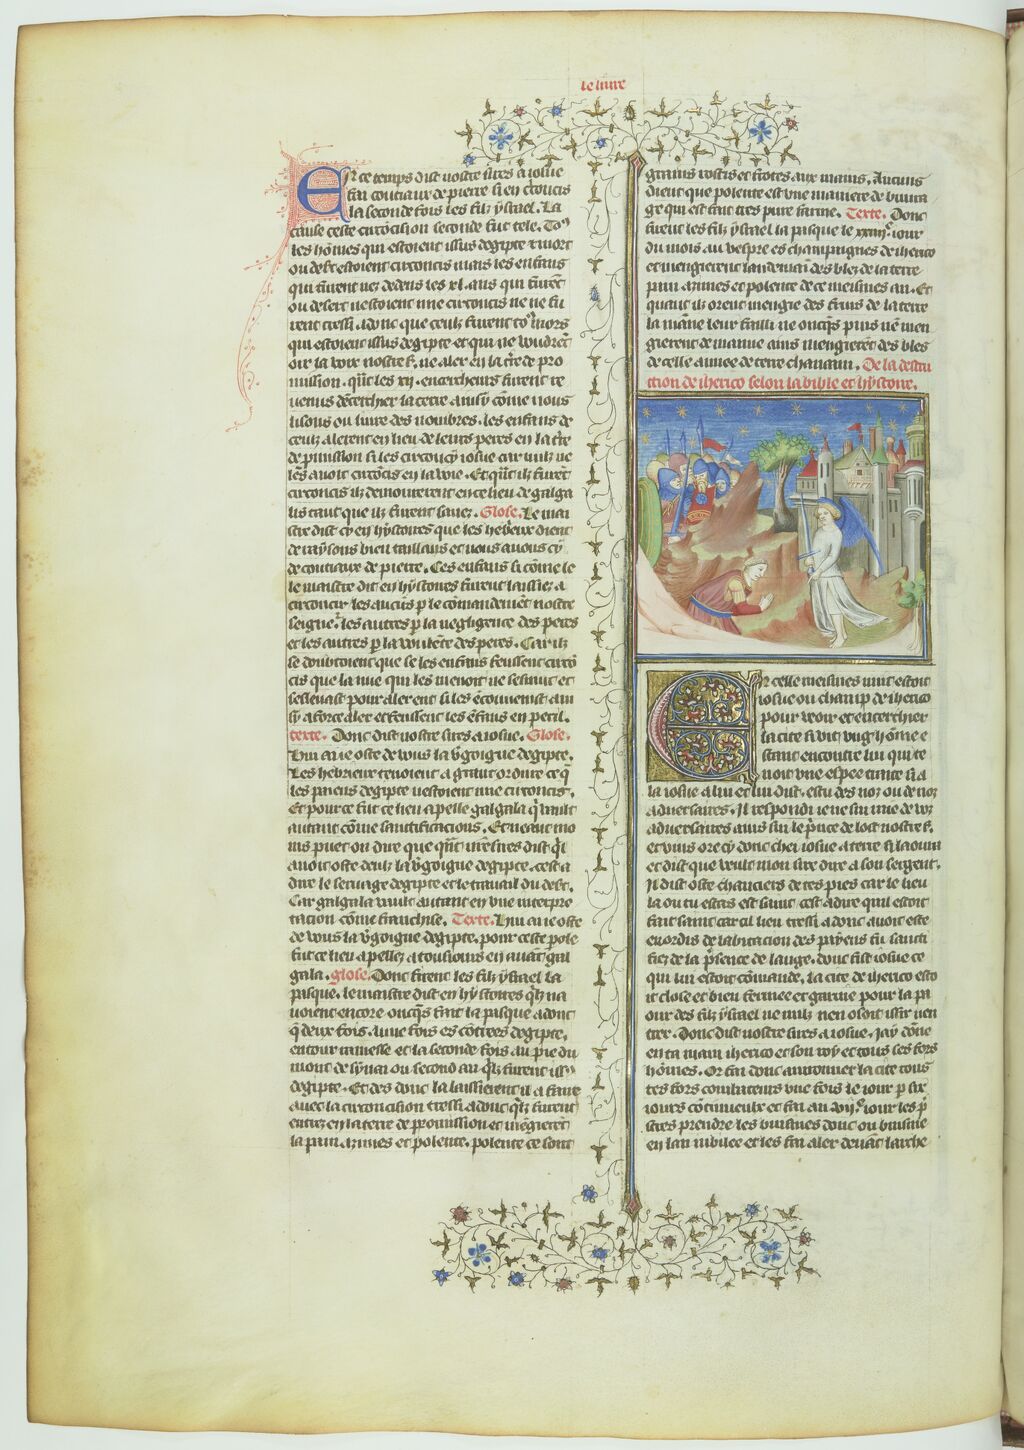 le liure
En ce temps dist nostre sires a iosue
fai coutiaux de pierre si en circoncis
la seconde fois les filz ysrael. La
cause ceste circoncision seconde fut tele. To9
les hõmes qui estoient issus degipte
estoient circoncis mais les enfans
qui furent nez dedens les xl. ans qui furẽt
ou desert nestoient mie circoncis ne ne fu
rent tressi adonc que ceulz furent to9 mors
qui estoient issus degipte et qui ne voudrẽt
oir la voix nostre s. ne aler en la tr̃e de pro
mission. q̃nt les xij. encercheurs furent re
uenus dencercher la terre ainsy cõme nous
lisons ou liure des nombres. les enfans de
ceulz alerent en lieu de leurs peres en la tr̃e
de p̃mission si les circoncy iosue car nulz ne
les auoit circõcis en la uoie. Et q̃nt ilz furẽt
circoncis ilz demourerent en ce lieu de galga
lis tant que ilz furent sanez. Glose. Le mai
stre dist cy en hystoires que les hebrieux dient
de rasours bien taillans et nous auons cy
de coutiaux de pierre. Ces enfans si cõme le
le maistre dit en hystoires furent laissiez a
circoncir les aucũs p le cõmandemẽt nostre
seigneur les autres p la negligence des peres
et les autres p la des peres. Car ilz
se doubtoient que se les enfans feussent circõ
cis que la nue qui les menoit ne sesmut et
sesleuast pour aler ent si les cõuenist ain
sy a force aler et feussent les ẽfans en peril.
texte. Donc dist nostre sires a iosue. Glose.
Hui ai ie oste de vous la v̾goigne degipte.
Les hebrieux tenoient a grant ordure ce q̃
les paiens degipte nestoient mie circoncis.
Et pour ce fut ce lieu apelle galgala q̃ vault
autant cõme saintificacions. Et neant mo
ins puet on dire que q̃nt n̾re sires dist q̃l
auoit oste deulz la v̾goigne degipte. cest a
dire le seruage degipte et le trauail du des̾t.
Car galgala vault autant en vne interpre
tacion cõme franchise. Texte. Hui ai ie oste
de vous la v̾goigne degipte. pour ceste pole
fut ce lieu apellez a tousiours en auãt gal
gala. glose. Donc firent les filz ysrael la
pasque. le maistre dist en hystoires q̃lz na
uoient encore oncq̃s fait la pasque adont
q̃ deux fois. vne fois es cõtrees degipte.
entour ramesse et la seconde fois au pie du
mont de synai ou second an q̃lz furent iss9
degipte. Et des donc la laissierent il a faire
auec la circoncision tressi adonc q̃lz furent
entrez en la terre de promission et mẽgierẽt
la pain azimes et polente. polente ce sont
grains rostis et frotes aux mains. Aucuns
dient que polente est vne maniere de buura
ge qui est fait tres pure farine. Texte. Donc
firent les filz ysrael la pasque le xiiij.e iour
du mois au vespre es champaignes de iherico
et mengierent landemain des blez de la terre
pain azimes et polente de ce meismes an. Et
quant ilz orent mengie des fruis de la terre
la mãne leur failli ne oncq̃s puis nẽ men
gierent de manne ains mengierẽt des bles
de celle annee de terre chanaan. De la destru
ction de iherico selon la bible et hystoire.
En celle meismes nuit estoit
iosue ou champ de iherico
pour veoir et encerchier
la cite si vit vng hõme e
stant encontre lui qui te
noit vne espee traite si a
la iosue a lui et lui dist. es tu des noz ou de noz
aduersaires. Il respondi ie ne sui mie de voz
aduersaires ains sui le p̃nce de lost nostre s.
et vins ore cy donc chei iosue a terre si laoura
et dist que veult mon sire dire a son sergent.
Il dist oste chauciers de tes pies car le lieu
la ou tu estas est saint cest a dire quil estoit
fait saint car cil lieu tressi adonc auoit este
enordis de labitacion des payens fu saintì
fiez de la p̃sence de lange. donc fist iosue ce
qui lui estoit cõmande. la cite de iherico esto
it close et bien fermee et garnie pour la pa
our des filz ysrael ne nulz nen osoit issir nen
trer. Donc dist nostre sires a iosue. Jay dõne
en ta main iherico et son roy et tous ses fors
hõmes. Or fai donc auironner la cite tous
tes fors combateurs vne fois le iour p six
iours cõtinuelx et fai au vij.e iour les p̃
stres prendre les buisines donc on buisine
en lan iubilee et les fai aler deuãt larche